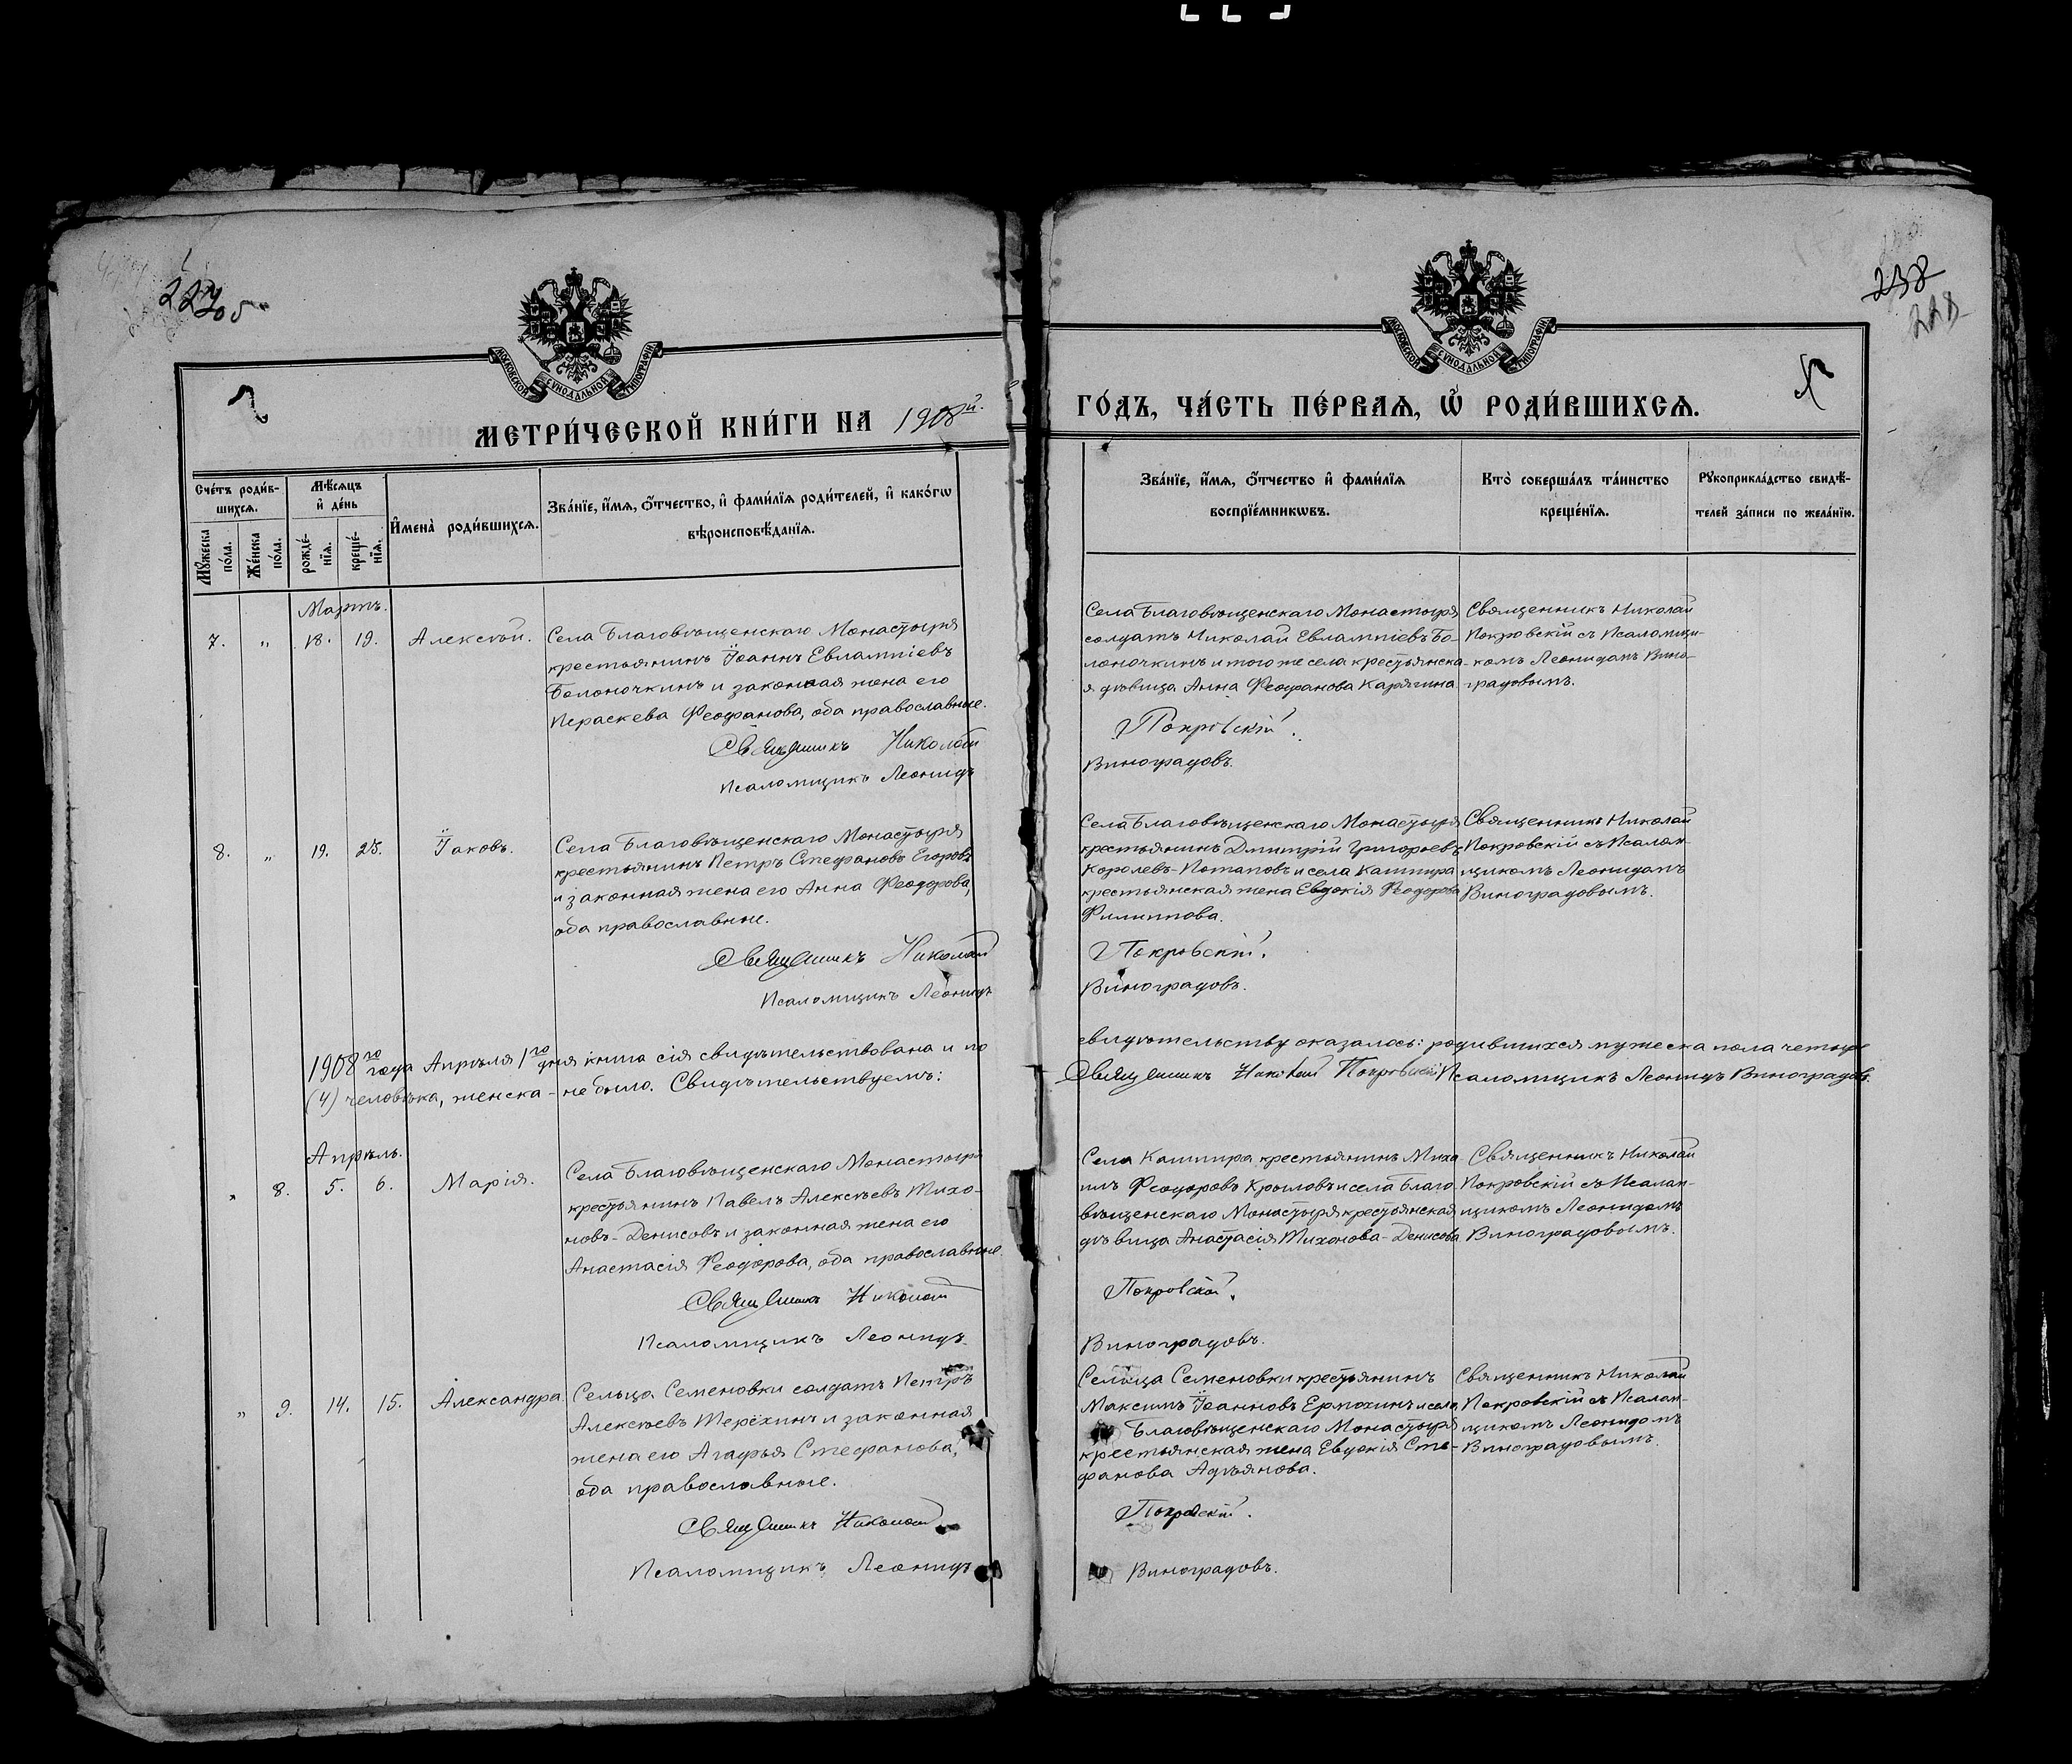 227 об
238
228
МОСКОВСКОЙ СѴНОДАЛЬНОЙ ТИПОГРАФІИ
МОСКОВСКОЙ СѴНОДАЛЬНОЙ ТИПОГРАФІИ
МЕТРИ́ЧЕСКОЙ КНИ́ГИ НА 1908й.
ГО́ДЪ, ЧА́СТЬ ПЕ́РВАѦ, Ѡ҆ РОДИ́ВШИХСѦ.
Сче́тъ роди́в-
шихсѧ.
Мꙋ́жеска по́ла.
Же́нска по́ла.
Мѣ́сѧцъ
и҆ де́нь
рожде́-
нїѧ.
креще́-
нїѧ.
И҆мена̀ роди́вшихсѧ.
Зва́нїе, и҆́мѧ, ѻ҆́тчество, и҆ фами́лїѧ роди́телей, и҆ како́гѡ
вѣроисповѣ́данїѧ.
Зва́нїе, и҆́мѧ, ѻ҆́тчество и҆ фами́лїѧ
воспрїе́мникѡвъ.
Кто̀ соверша́лъ та́инство
креще́нїѧ.
Рꙋкоприкла́дство свидѣ́-
телей за́писи по жела́нїю.
Мартъ.
7. „ 18. 19. Алексѣй.
Села Благовѣщенскаго Монастыря
крестьянинъ Іоаннъ Евлампіевъ
Болоночкинъ и законная жена его
Параскева Феофанова, оба православные.
Священникъ Николай
Псаломщикъ Леонидъ
Села Благовѣщенскаго Монастыря
солдатъ Николай Евлампіевъ Бо-
лоночкинъ и того же села крестьянска-
я дѣвица Анна Феофанова Карягина
Покровскій.
Виноградовъ.
Священникъ Николай
Покровскій съ Псаломщи-
комъ Леонидомъ Вино-
градовымъ.
8. „ 19. 25. Іаковъ.
Села Благовѣщенскаго Монастыря
крестьянинъ Петръ Стефановъ Егоровъ
и законная жена его Анна Феодорова,
оба православные.
Священникъ Николай
Псаломщикъ Леонидъ
Села Благовѣщенскаго Монастыря
крестьянинъ Дмитрій Григорьевъ
Королевъ-Потаповъ и села Кашпира
крестьянская жена Евдокія Феодорова
Филиппова.
Покровскій.
Виноградовъ.
Священникъ Николай
Покровскій съ Псалом-
щикомъ Леонидомъ
Виноградовымъ.
1908го года Апрѣля 1го дня книга сія свидѣтельствована и по
свидѣтельству оказалось: родившихся мужеска пола четыре
(4) человѣка, женска - не было. Свидѣтельствуемъ:
Священникъ Николай Покровскій Псаломщикъ Леонидъ Виноградовъ.
Апрѣль.
„ 8. 5. 6. Марія.
Села Благовѣщенскаго Монастыря
крестьянинъ Павелъ Алексѣевъ Тихо-
новъ-Денисовъ и законная жена его
Анастасія Феодорова, оба православные.
Священникъ Николай
Псаломщикъ Леонидъ.
Села Кашпира крестьянинъ Миха
илъ Феодоровъ Крыловъ и села Благо
вѣщенскаго Монастыря крестьянская
дѣвица Анастасія Тихонова-Денисова
Покровскій.
Виноградовъ.
Священникъ Николай
Покровскій съ Псалом-
щикомъ Леонидомъ
Виноградовымъ.
„ 9. 14. 15. Александра.
Сельца Семеновки солдатъ Петръ
Алексѣевъ Терёхинъ и законная
жена его Агафья Стефанова,
оба православные.
Священникъ Николай
Псаломщикъ Леонидъ
Сельца Семеновки крестьянинъ
Максимъ Іоанновъ Ермохинъ и села
Благовѣщенскаго Монастыря
крестьянская жена Евдокія Сте-
фанова Адѣянова.
Покровскій.
Виноградовъ.
Священникъ Николай
Покровскій съ Псалом-
щикомъ Леонидомъ
Виноградовымъ.